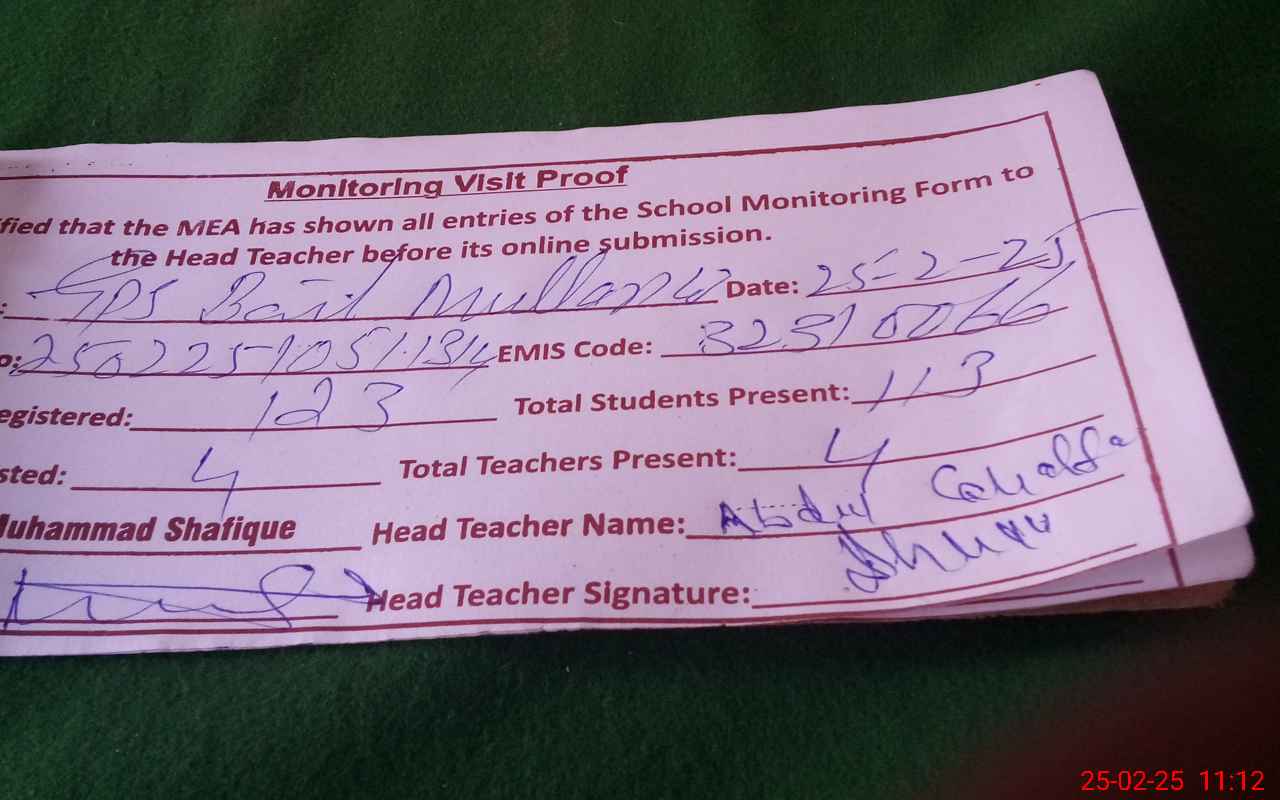 Monitoring Visit Proof
fied that the MEA has shown all entries of the School Monitoring Form to
the Head Teacher before its online submission.
: GPS Bait Mullanwali Date: 25-2-25
o: EMIS Code: 32310066
egistered: 123 Total Students Present: 113
sted: 4 Total Teachers Present: 4
Muhammad Shafique Head Teacher Name: Abdul
Head Teacher Signature:
25-02-25 11:12